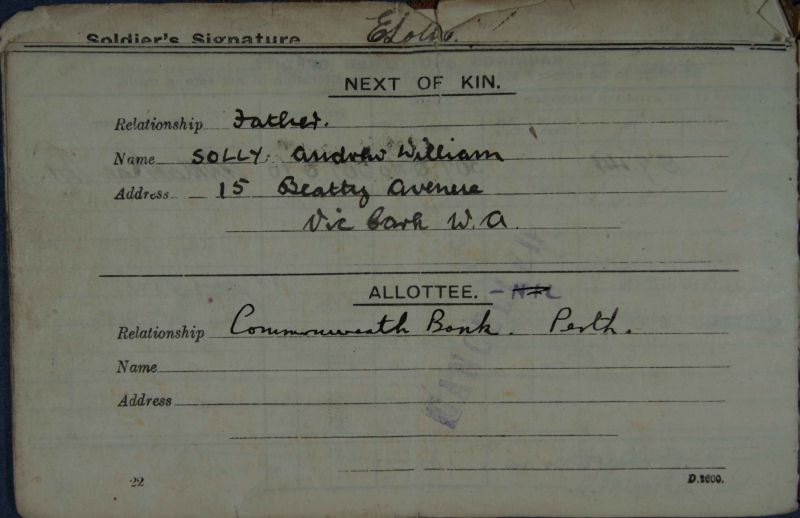 Soldier's Signature ESolly.
NEXT OF KIN.
Relationship Father.
Name SOLLY. Andrew William
Address 15 Beatty Avenue
Vic Park W.A.
ALLOTTEE. - NIL
Relationship Commonwealth Bank. Perth.
Name
Address
22 D.2600.